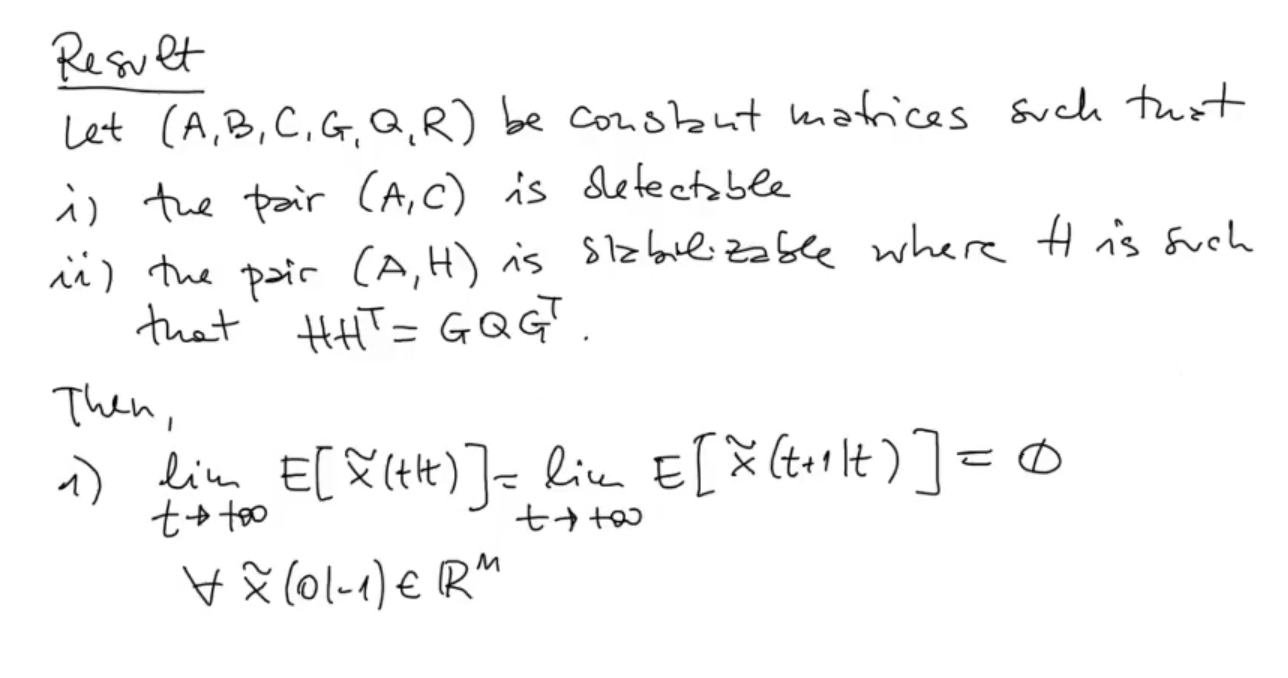 Result
Let (A,B,C,G,Q,R) be constant matrices such that
i) the pair (A,C) is detectable
ii) the pair (A,H) is stabilizable where H is such
that HHᵀ = GQGᵀ.
Then,
1) lim E[x̃(t|t)] = lim E[x̃(t+1|t)] = 0
t→+∞ t→+∞
∀ x̃(0|-1) ∈ ℝⁿ